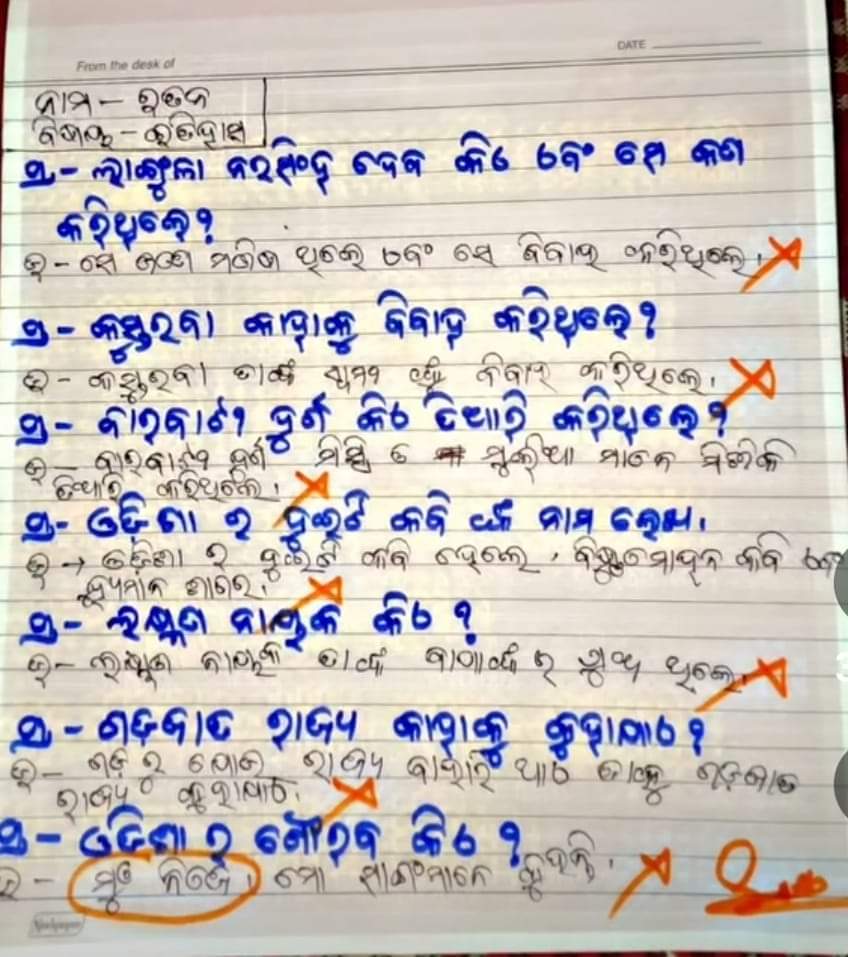 From the desk of
DATE
ନାମ - ରତନ
ବିଷୟ - ଇତିହାସ
ପ୍ର - ଲାଙ୍ଗୁଳା ନରସିଂହ ଦେବ କିଏ ଏବଂ ସେ କଣ
କରିଥିଲେ?
ଉ - ସେ ଜଣେ ମଣିଷ ଥିଲେ ଏବଂ ସେ ବିବାହ କରିଥିଲେ।
ପ୍ର - କସ୍ତୁରବା କାହାକୁ ବିବାହ କରିଥିଲେ?
ଉ - କସ୍ତୁରବା ତାଙ୍କ ସ୍ୱାମୀ ଙ୍କୁ ବିବାହ କରିଥିଲେ।
ପ୍ର - ବାରବାଟୀ ଦୁର୍ଗ କିଏ ତିଆରି କରିଥିଲେ?
ଉ - ବାରବାଟୀ ଦୁର୍ଗ ମିସ୍ତ୍ରି ଓ ମୂଲିଆ ମାନେ ମିଶିକି
ତିଆରି କରିଥିଲେ।
ପ୍ର - ଓଡ଼ିଶା ର ଦୁଇଟି କବି ଙ୍କ ନାମ ଲେଖ।
ଉ → ଓଡ଼ିଶା ର ଦୁଇଟି କବି ହେଲେ, ବିଷ୍ଣୁମୋହନ କବି ଏବଂ
ହ୍ୟୁମାନ ଶାଗର।
ପ୍ର - ଲକ୍ଷ୍ମଣ ନାୟକ କିଏ ?
ଉ - ଲକ୍ଷ୍ମଣ ନାୟକ ତାଙ୍କ ବାପାଙ୍କ ର ପୁଅ ଥିଲେ।
ପ୍ର - ଗଡ଼ଜାତ ରାଜ୍ୟ କାହାକୁ କୁହାଯାଏ ?
ଉ - ଗଡ଼ ରୁ ଯୋଉ ରାଜ୍ୟ ବାହାରି ଥାଏ ତାକୁ ଗଡ଼ଜାତ
ରାଜ୍ୟ କୁହାଯାଏ।
ପ୍ର - ଓଡିଶା ର ଗୌରବ କିଏ ?
ଉ - ମୁଁ ନିଜେ। ମୋ ସାଙ୍ଗମାନେ କୁହନ୍ତି।